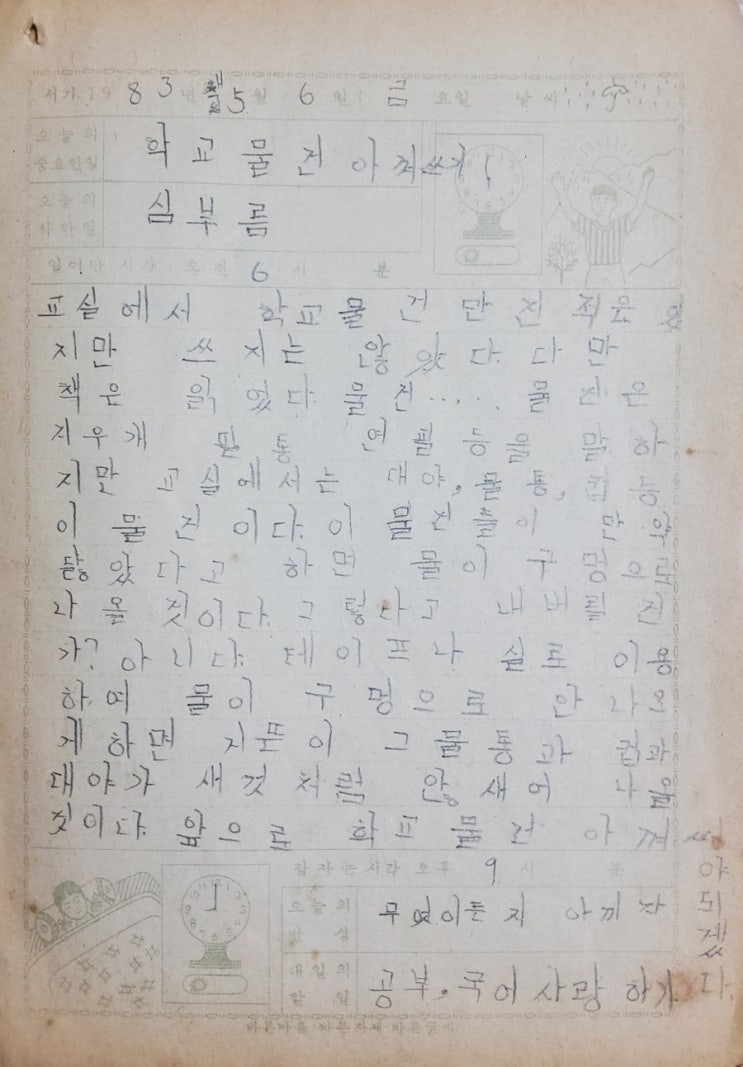 서기 19 83 년 5 월 6 일 ( 금 요일 날씨
오늘의 중요한일 학교물건 아껴쓰기
오늘의 착한일 심부름
일어난 시각 오전 6 시 분
교실에서 학교물건 만진 적은 있
지만 쓰지는 않았다. 다만
책은 읽었다. 물건..... 물건은
지우개 필통 연필등을 말하
지만 교실에서는 대야, 물통, 컵등
이 물건이다. 이 물건들이 만약
닳았다고 하면 물이 구멍으로
나올 것이다. 그렇다고 내버릴건
가? 아니다. 테이프나 실로 이용
하여 물이 구멍으로 안나오
게 하면 지믄이 그 물통과 컵과
대야가 새것처럼 않새어 나올
것이다. 앞으로 학교물건 아껴써
야되겠다.
잠자는시각 오후 9 시 분
오늘의 반성 무엇이든지 아끼자
내일의 할일 공부, 국어사랑하기
바른마음·바른자세·바른글씨